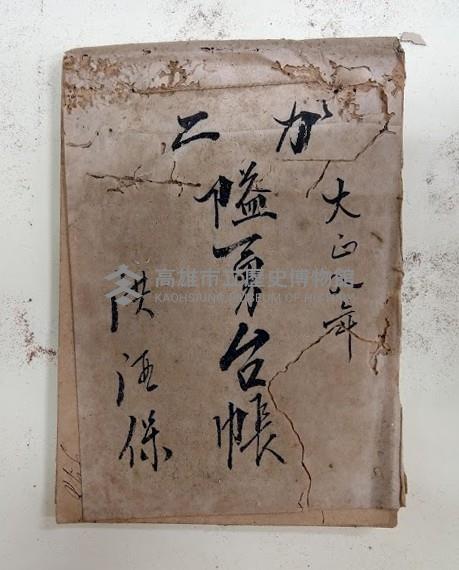 大正年
加二
隘勇台帳
洪酒保
高雄市立歷史博物館
KAOHSIUNG MUSEUM OF HISTORY